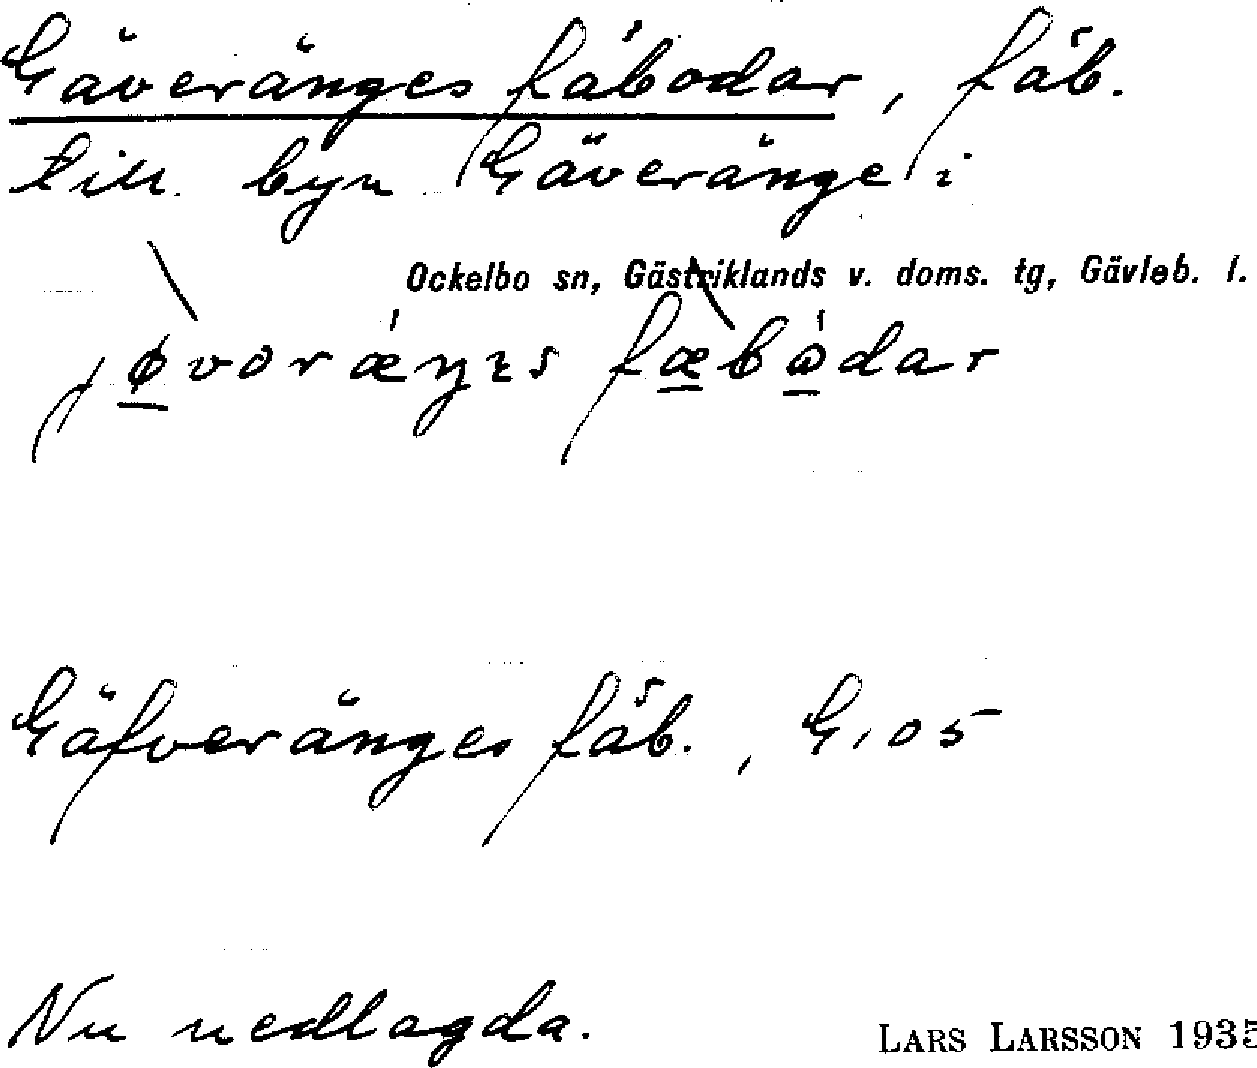 Gäveränges fäbodar, fäb.
till byn Gäveränge i
Ockelbo sn, Gästriklands v. doms. tg, Gävleb. l.
jøvoræŋɩs fæbɷdar
Gäfveränges fäb., G, 05
Nu nedlagda.
LARS LARSSON 1935